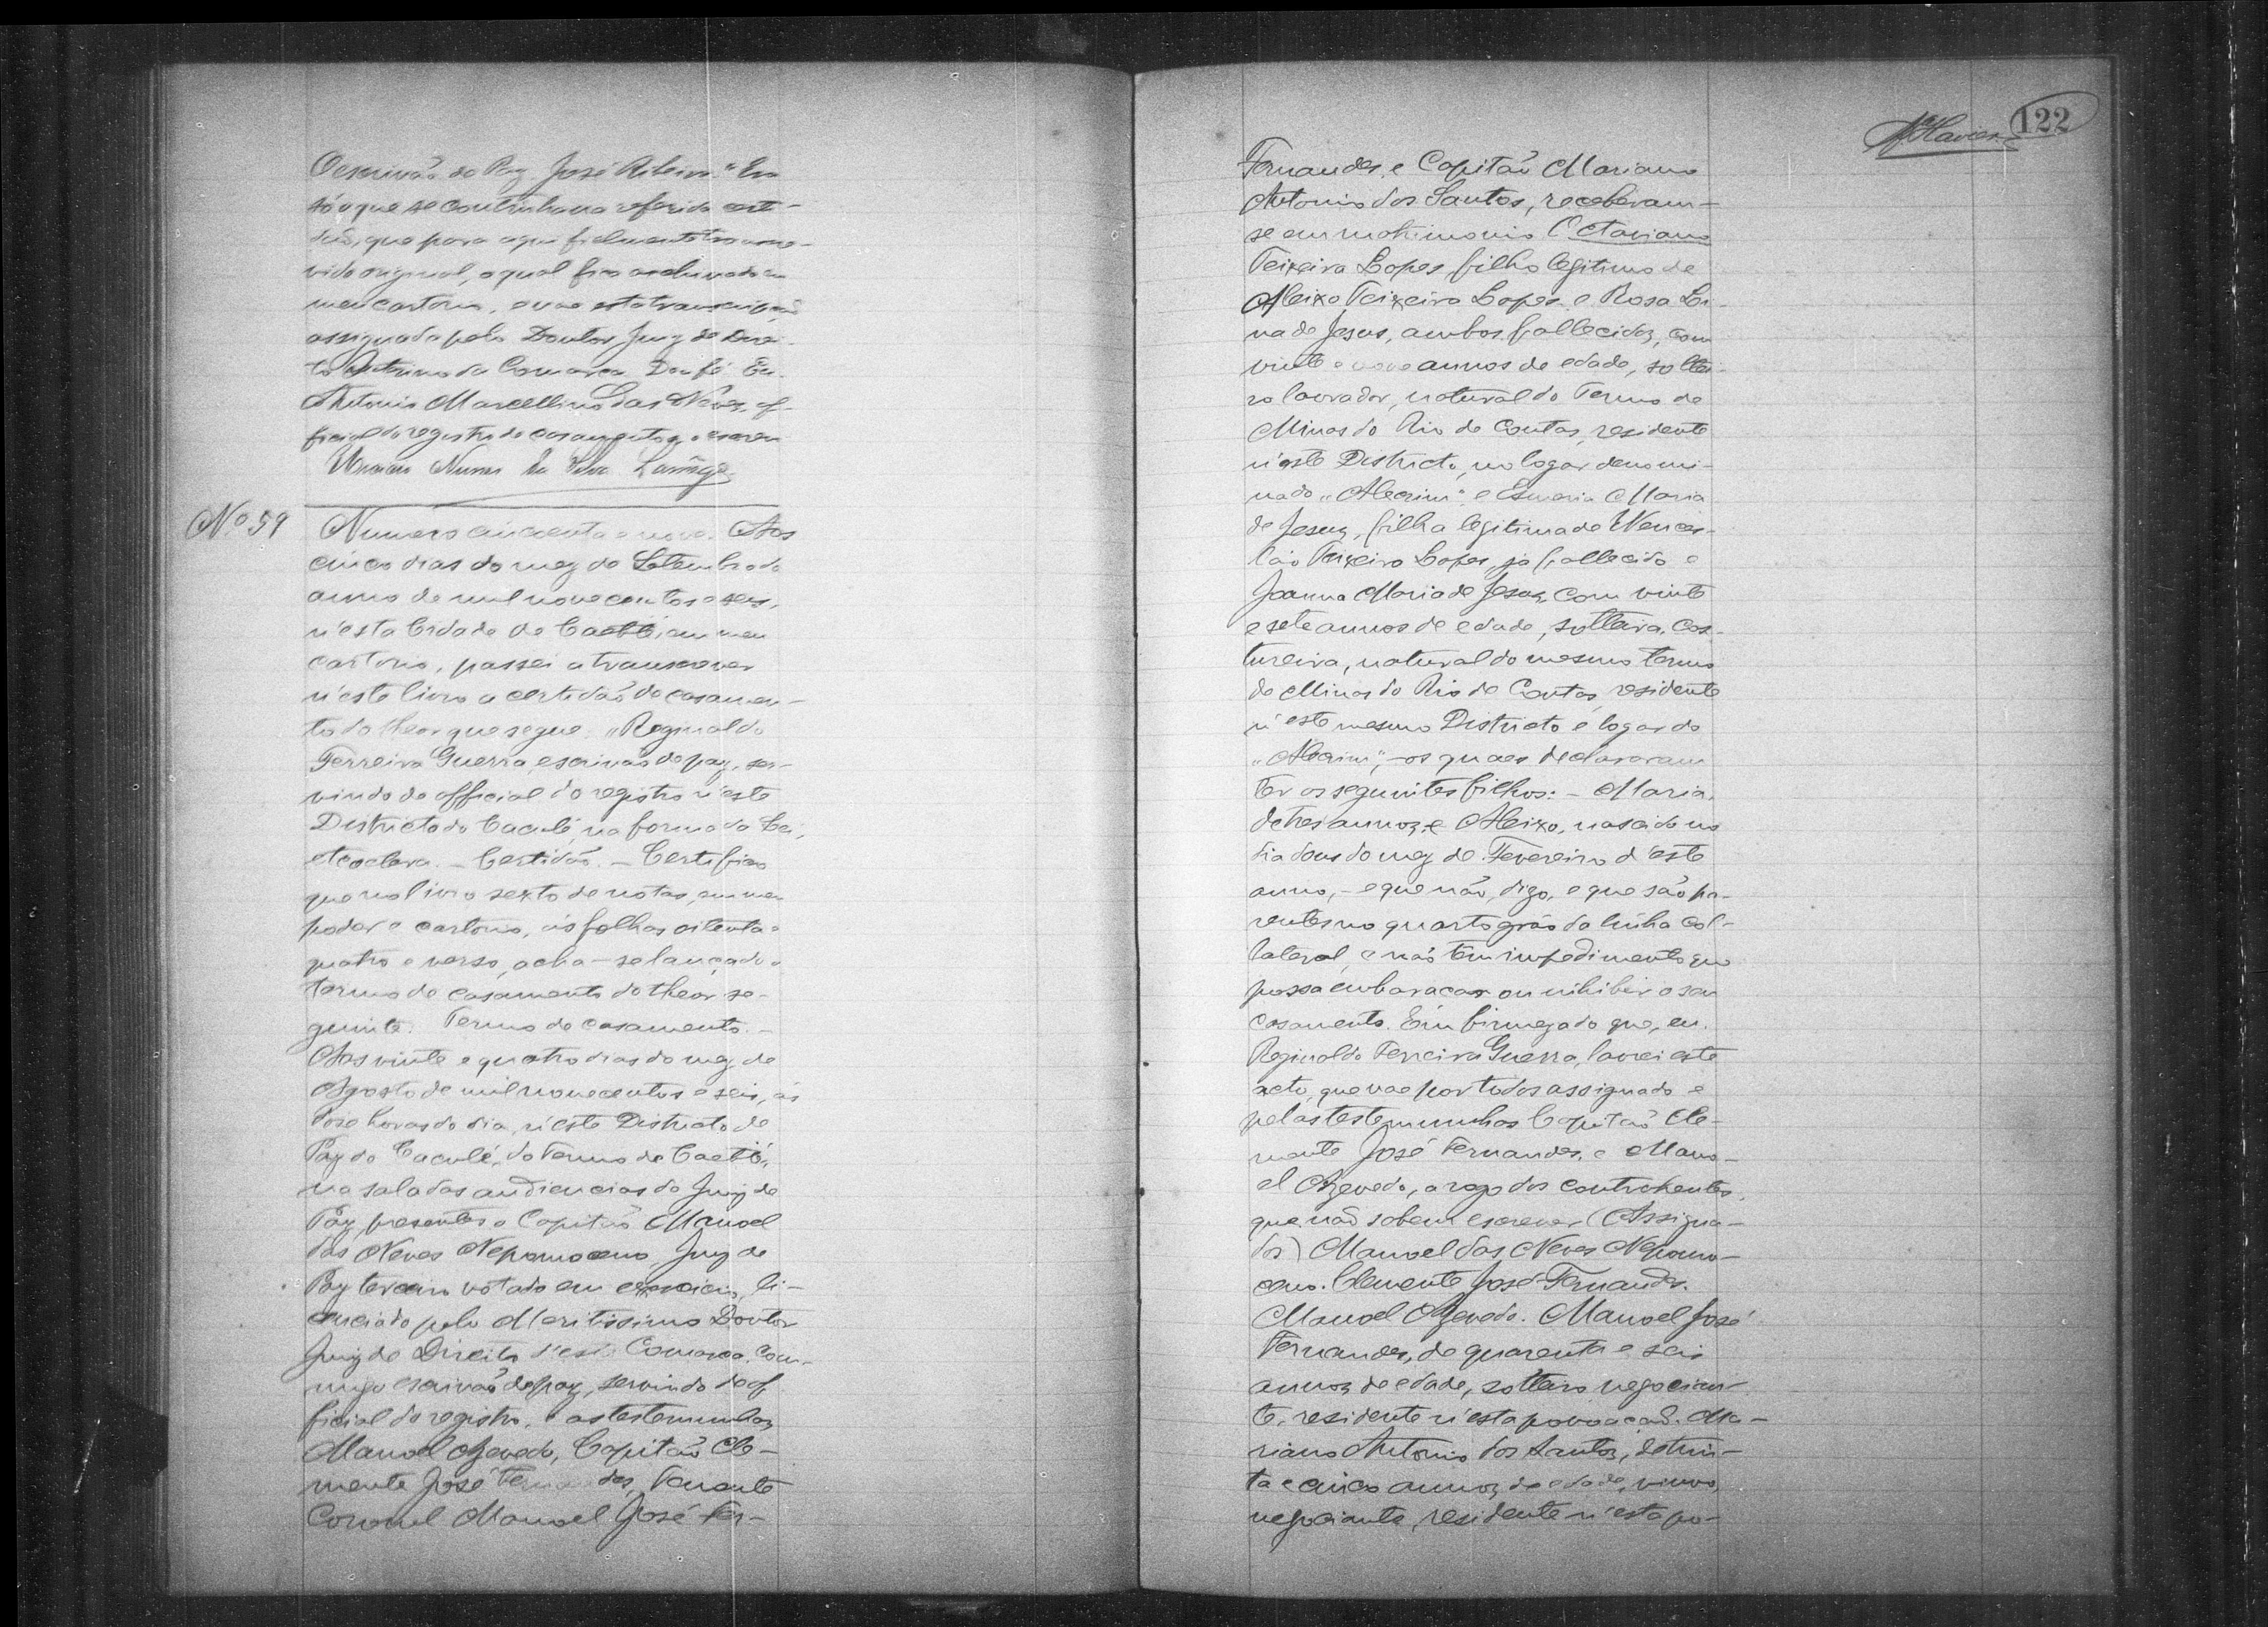 O escrivão de Paz José Ribeiro." Era
só o que se continha na referida certi-
dão, que para aqui fielmente
vido original, o qual fica archivado em
meu cartorio, e vae esta transcripção
assignada pelo Doutor Juiz de Direi-
to da Comarca. Dou fé. Eu.
Antonio Marcellino das Neves, of-
ficial do registro de casamentos, o escrevi
Nunes da Silva
Nº 59
Numero cincoenta e nove. Aos
cinco dias do mez de Setembro do
anno de mil novecentos e seis,
n'esta Cidade de Caetité, em meu
cartorio, passei a transcrever
n'este livro a certidão de casamen-
to do theor que segue: "Reginaldo
Ferreira Guerra, escrivão de paz, ser-
vindo de official do registro n'este
Districto do Caculé, na forma da Lei,
etcoetera. - Certidão. - Certifico
que no livro sexto de notas, em meu
poder e cartorio, ás folhas oitenta e
quatro e verso, acha-se lançado o
termo de casamento do theor se-
guinte: Termo de casamento. -
Aos vinte e quatro dias do mez de
Agosto de mil novecentos e seis, ás
dose horas do dia, n'este Districto de
Paz do Caculé, do Termo de Caetité,
na sala das audiencias do Juiz de
Paz, presentes o Capitão Manoel
das Neves Nepomoceno, Juiz de
Paz terceiro votado em exercicio, li-
cenciado pelo Meritissimo Doutor
Juiz de Direito d'esta Comarca, com-
migo escrivão de paz, servindo de of-
ficial do registro, e as testemunhas
Manoel Azevedo, Capitão Cle-
mente José Fernandes, Tenente
Coronel Manoel José Fer-
122
Fernandes, e Capitão Mariano
Antonio dos Santos, receberam-
se em matrimonio Octaviano
Teixeira Lopes, filho legitimo de
Aleixo Teixeira Lopes e Rosa Li-
na de Jesus, ambos fallecidos, com
vinte e nove annos de edade, soltei-
ro lavrador, natural do Termo de
Minas do Rio de Contas, residente
n'este Districto, no logar denomi-
nado "Alecrim" e Esmeria Maria
de Jesus, filha legitima de Wences-
láo Teixeira Lopes, já fallecido e
Joanna Maria de Jesus, com vinte
e sete annos de edade, solteira, cos-
tureira, natural do mesmo termo
de Minas do Rio de Contas, residente
n'este mesmo Districto e logar do
"Alecrim", - os quaes declararam
ter os seguintes filhos: - Maria,
de tres annos, e Aleixo, nascido no
dia dous do mez de Fevereiro d'este
anno, - e que não, digo, e que são pa-
rentes no quarto gráo da linha col-
lateral, e não tem impedimento que
possa embaraçar ou inhibir o seu
casamento. Em firmeza do que, eu.
Reginaldo Ferreira Guerra, lavrei este
acto, que vae por todos assignado e
pelas testemunhas Capitão Cle-
mente José Fernandes, e Mano-
el Azevedo, a rogo dos contrahentes,
que não sabem escrever. (Assigna-
dos) Manoel das Neves Nepomo-
ceno. Clemente José Fernandes.
Manoel Azevedo. Manoel José
Fernandes, de quarenta e seis
annos de edade, solteiro negocian-
te, residente n'esta povoação. Ma-
riano Antonio dos Santos, de trin-
ta e cinco annos de edade, viuvo,
negociante, residente n'esta po-